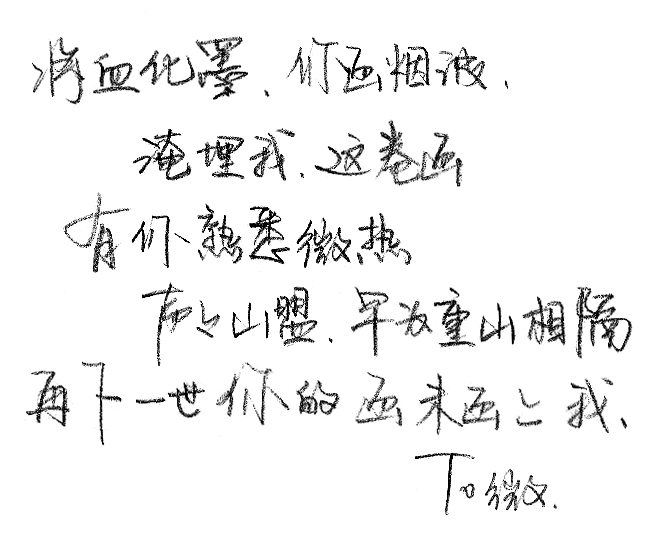 将血化墨、你画烟波、
淹埋我、这卷画
有你熟悉微热
声声山盟、早为重山相隔
再下一世你的画未画上我、
To微.